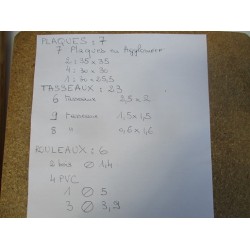 PLAQUES : 7
7 Plaques en Aggloméré
2 : 35 x 35
4 : 30 x 30
1 : 30 x 25,5
TASSEAUX : 23
6 Tasseaux 2,5 x 2
9 Tasseaux 1,5 x 1,5
8 " 0,6 x 1,6
ROULEAUX : 6
2 bois ∅ 1,4
4 PVC
1 ∅ 5
3 ∅ 3,9